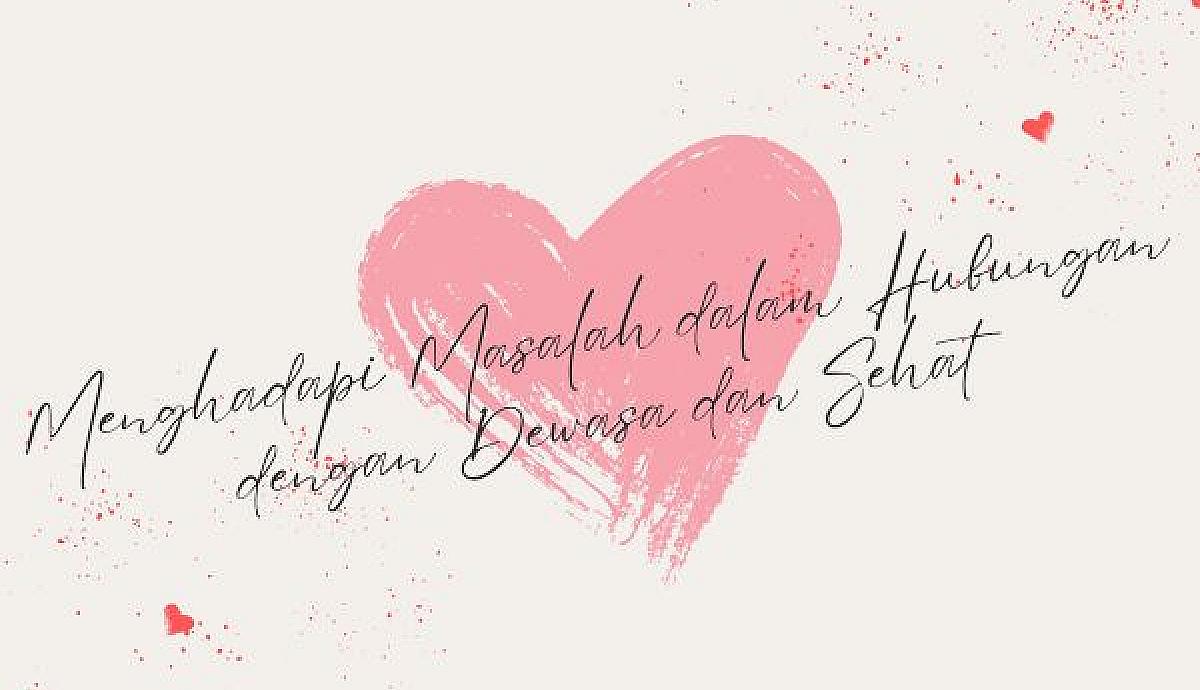 Menghadapi Masalah dalam Hubungan
dengan Dewasa dan Sehat